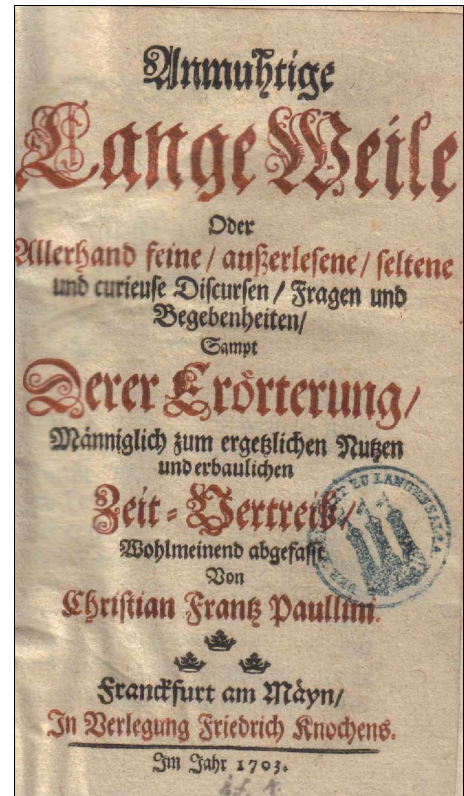 Anmuhtige
Lange Weile
Oder
Allerhand feine / außerlesene / seltene
und curieuse Discursen / Fragen und
Begebenheiten /
Sampt
Derer Erörterung /
Männiglich zum ergetzlichen Nutzen
und erbaulichen
Zeit-Vertreib /
Wohlmeinend abgefasst
Von
Christian Frantz Paullini.
Franckfurt am Mäyn /
In Verlegung Friedrich Knochens.
Im Jahr 1703.